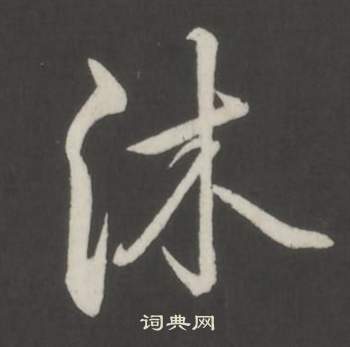 沐
词典网